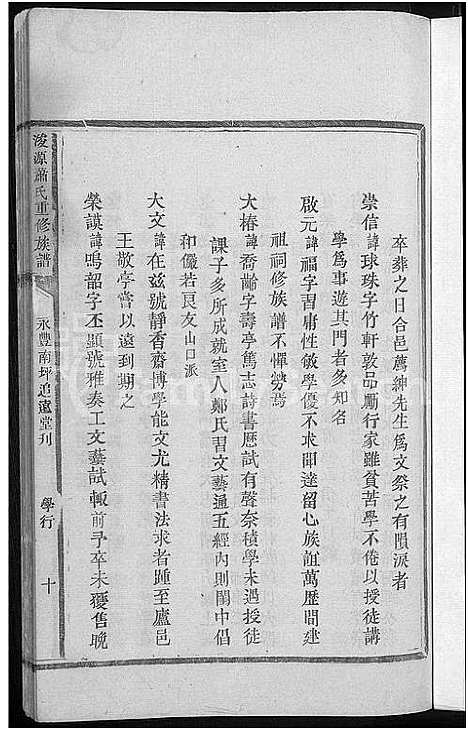 卒葬之日合邑薦紳先生爲文祭之有隕淚者
崇信諱球珠字竹軒敦品勵行家雖貧苦學不倦以授徒講
學爲事遊其門者多知名
啟元諱福字習庸性敏學優不求聞達留心族誼萬歷間建
祖祠修族譜不憚勞焉
大椿諱喬齡字壽亭篤志詩書歷試有聲奈積學未遇授徒
課子多所成就室人鄭氏習文藝通五經內則閨中倡
和儼若良友山口派
大文諱在茲號靜香齋博學能文尤精書法求者踵至廬邑
王敬亭嘗以遠到期之
榮謨諱鳴韶字丕顯號雅泰工文藝試輒前矛卒未獲售晚
浚源蕭氏重修族譜
永豐南坪追遠堂刋
學行
十